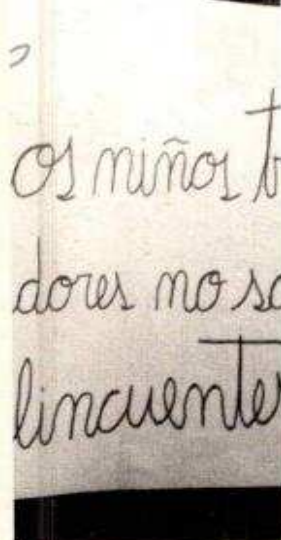 os niños t
dores no so
lincuente